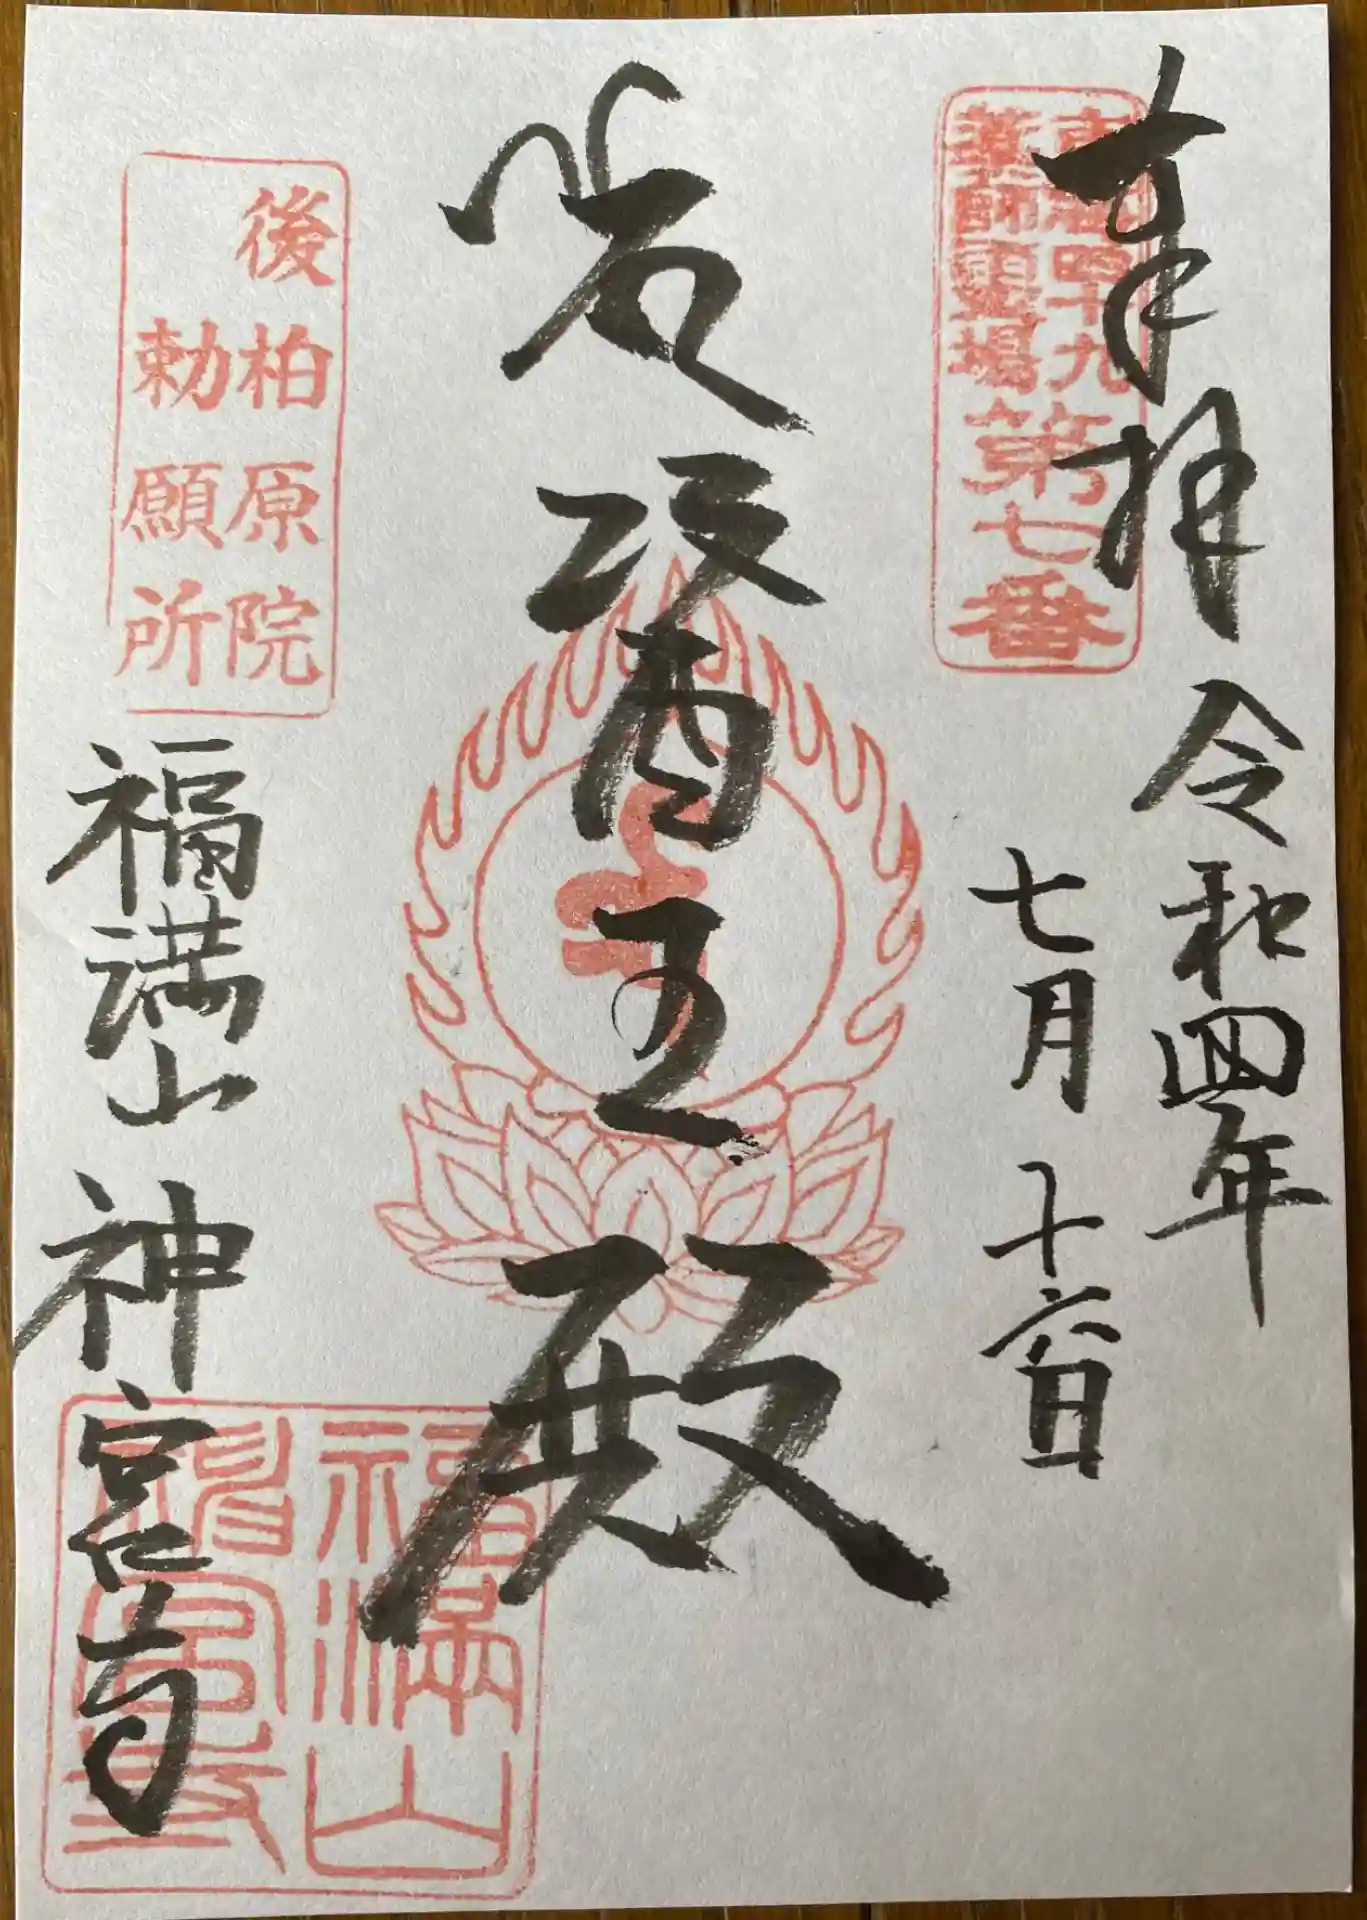 奉拝
東海四十九
薬師霊場
第七番
令和四年
七月十六日
薬
醫王殿
後柏原院
勅願所
福満山 神宮寺
福満山
神宮寺